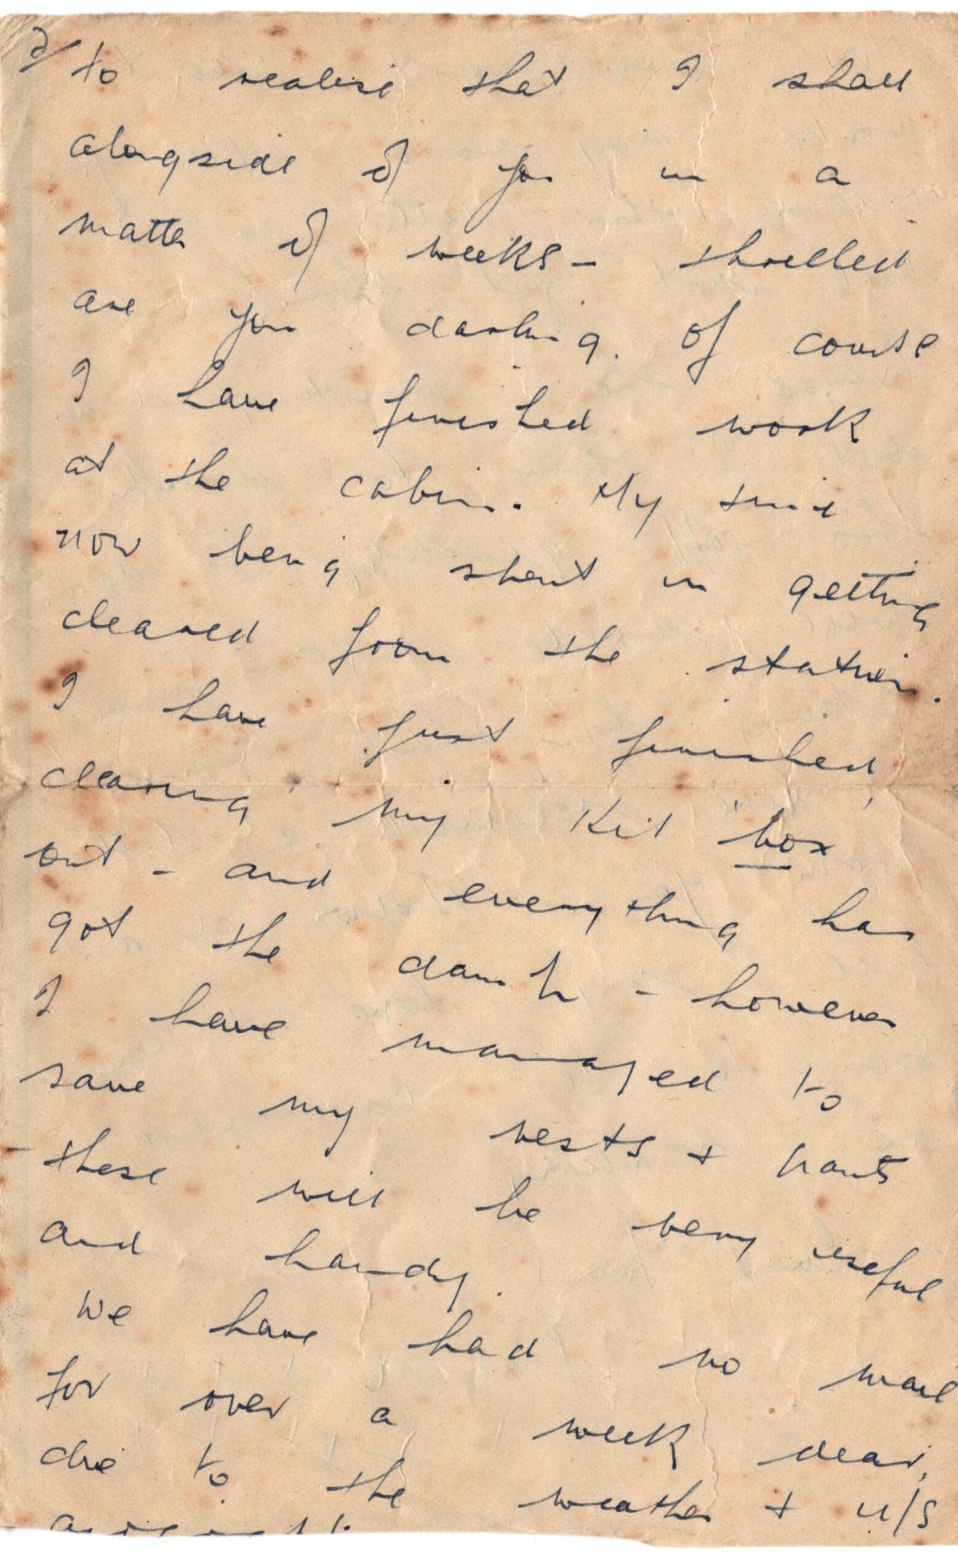 2/ to realise that I shall
alongside of you in a
matter of weeks - thrilled
are you darling. Of course
I have finished work
at the cabin. My time
now being spent in getting
cleared from the station.
I have just finished
clearing my kit box
out - and everything has
got the damp - however
I have managed to
save my vests + pants
- these will be very useful
and handy.
We have had no mail
for over a week dear,
due to the weather + U/S